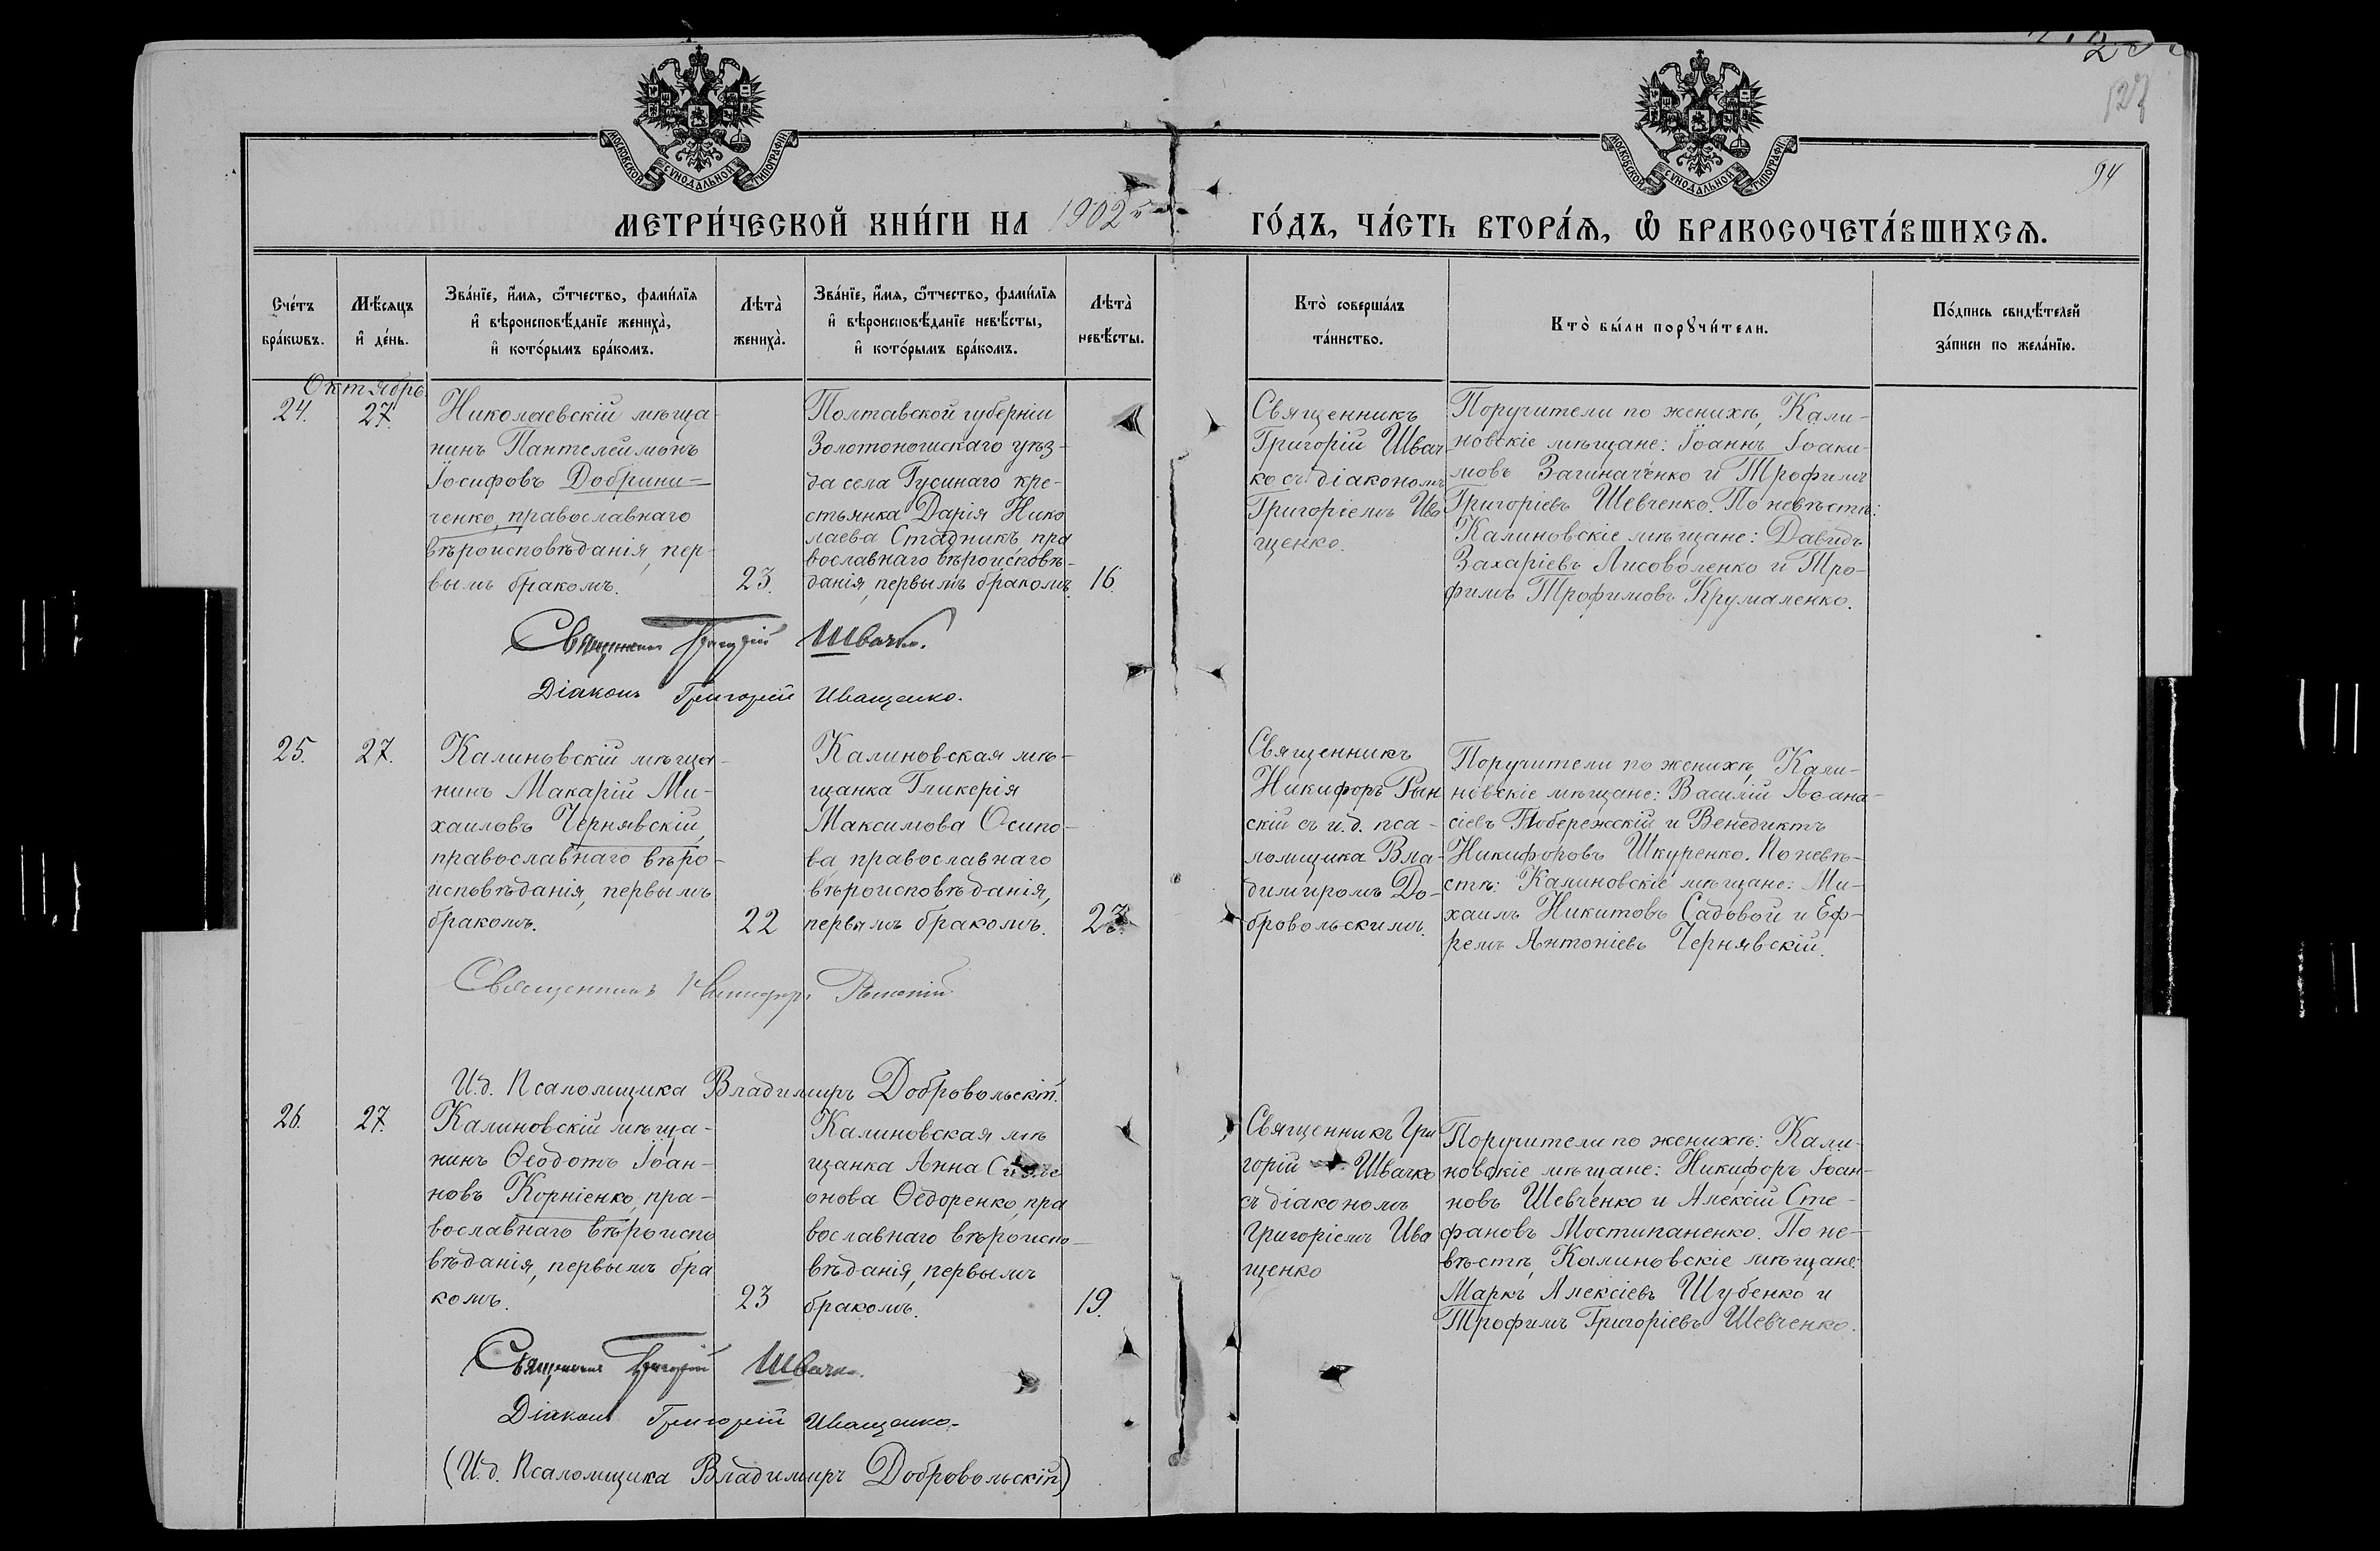 94
МОСКОВСКОЙ СѴНОДАЛЬНОЙ ТИПОГРАФІИ
МОСКОВСКОЙ СѴНОДАЛЬНОЙ ТИПОГРАФІИ
МЕТРИ́ЧЕСКОЙ КНИ́ГИ НА 1902й ГО́ДЪ, ЧА́СТЬ ВТОРА́Ѧ, Ѽ БРАКОСОЧЕТА́ВШИХСѦ.
Сче́тъ
бра́кѡвъ.
Мѣ́сѧцъ
и҆ де́нь.
Зва́нїе, и҆́мѧ, ѻ҆́тчество, фами́лїѧ
и҆ вѣроисповѣ́данїе жениха̀,
и҆ кото́рымъ бра́комъ.
Лѣта̀
жениха̀.
Зва́нїе, и҆́мѧ, ѻ҆́тчество, фами́лїѧ
и҆ вѣроисповѣ́данїе невѣ́сты,
и҆ кото́рымъ бра́комъ.
Лѣта̀
невѣ́сты.
Кто̀ соверша́лъ
та́инство.
Кто̀ бы́ли порꙋчи́тели.
По́дпись свидѣ́телей
за́писи по жела́нїю.
Октябрь
24.
27.
Николаевскій мѣща-
нинъ Пантелеймонъ
Іосифовъ Добрини-
ченко, православнаго
вѣроисповѣданія, пер-
вымъ бракомъ.
23.
Полтавской губерніи
Золотоношскаго уѣз-
да села Гусинаго кре-
стьянка Дарія Нико
лаева Стадникъ пра
вославнаго вѣроисповѣ-
данія, первымъ бракомъ.
16.
Священникъ
Григорій Швач-
ко съ діакономъ
Григоріемъ Ива
щенко.
Поручители по женихѣ, Кали-
новскіе мѣщане: Іоаннъ Іоаки-
мовъ Загиначенко и Трофимъ
Григоріевъ Шевченко. По невѣстѣ:
Калиновскіе мѣщане: Давидъ
Захаріевъ Лисоволенко и Тро-
фимъ Трофимовъ Крумаленко.
Священникъ Григорій Швачко.
Діаконъ Григорій Иващенко.
25.
27.
Калиновскій мѣща-
нинъ Макарій Ми-
хаиловъ Чернявскій,
православнаго вѣро-
исповѣданія, первымъ
бракомъ.
22
Калиновская мѣ-
щанка Гликерія
Максимова Осипо-
ва православнаго
вѣроисповѣданія,
первымъ бракомъ.
23.
Священникъ
Никифоръ Рын
скій съ и.д. пса-
ломщика Вла-
димиромъ До-
бровольскимъ.
Поручители по женихѣ, Кали-
новскіе мѣщане: Василій Аѳана-
сіевъ Побережскій и Венедиктъ
Никифоровъ Шкуренко. По невѣ-
стѣ: Калиновскіе мѣщане: Ми-
хаилъ Никитовъ Садовой и Еф-
ремъ Антоніевъ Чернявскій.
Священникъ Никифоръ Рынскій
И.д. Псаломщика Владимиръ Добровольскій.
26.
27.
Калиновскій мѣща-
нинъ Ѳеодотъ Іоан-
новъ Корніенко, пра-
вославнаго вѣроиспо
вѣданія, первымъ бра
комъ.
23
Калиновская мѣ
щанка Анна Симе
онова Ѳедоренко, пра
вославнаго вѣроиспо-
вѣданія, первымъ
бракомъ.
19.
Священникъ Гри
горій Швачко
съ діакономъ
Григоріемъ Ива
щенко
Поручители по женихѣ: Кали-
новскіе мѣщане: Никифоръ Іоан-
новъ Шевченко и Алексій Сте-
фановъ Мостипаненко. По не-
вѣстѣ, Калиновскіе мѣщане:
Маркъ Алексіевъ Шубенко и
Трофимъ Григоріевъ Шевченко.
Священникъ Григорій Швачко.
Діаконъ Григорій Иващенко.
(И.д. Псаломщика Владимиръ Добровольскій)